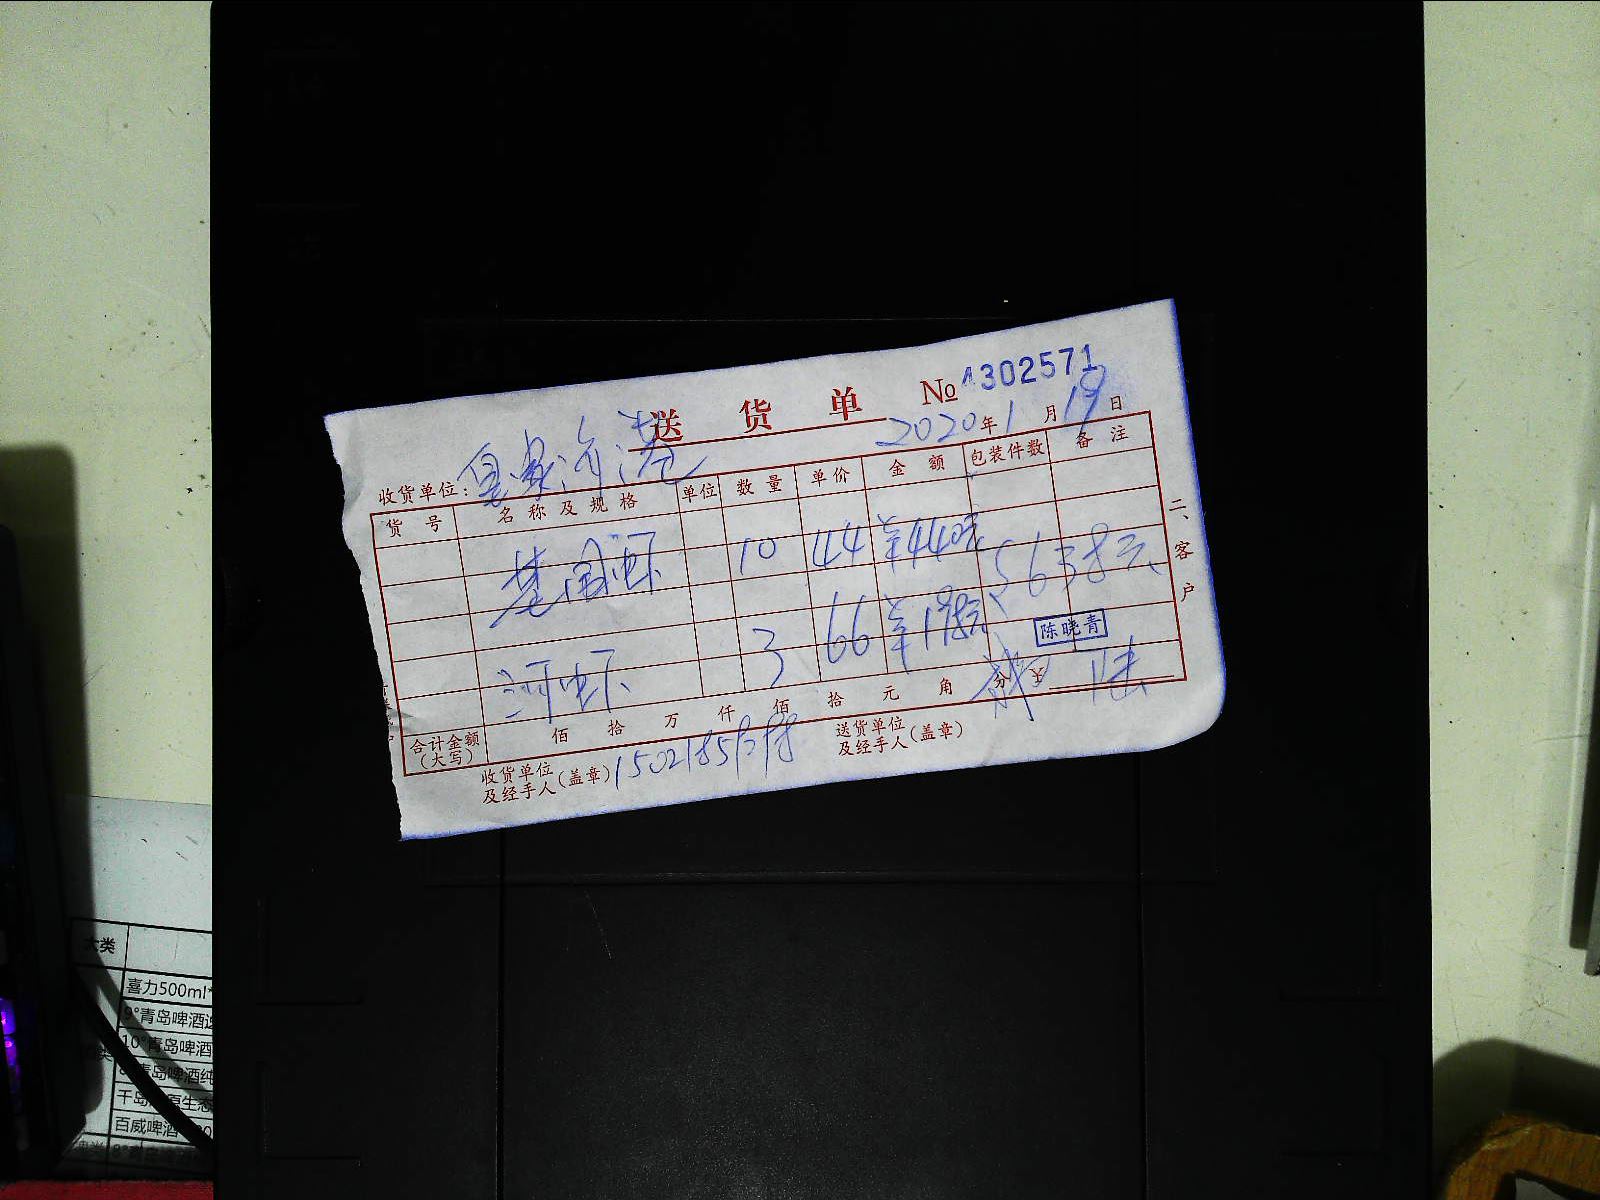 送货单 № 4302571
2020年1月19日
收货单位:
货号 名称及规格 单位 数量 单价 金额 包装件数 备注
基围虾 10 44 ¥440元
5638元
河虾 3 66 ¥198元
陈晓青
合计金额(大写) 佰 拾 万 仟 佰 拾 元 角 分
收货单位及经手人(盖章)
送货单位及经手人(盖章)
二、客户
大类
喜力500ml*
9°青岛啤酒
10°青岛啤酒
青岛啤酒纯
原生态
百威啤酒